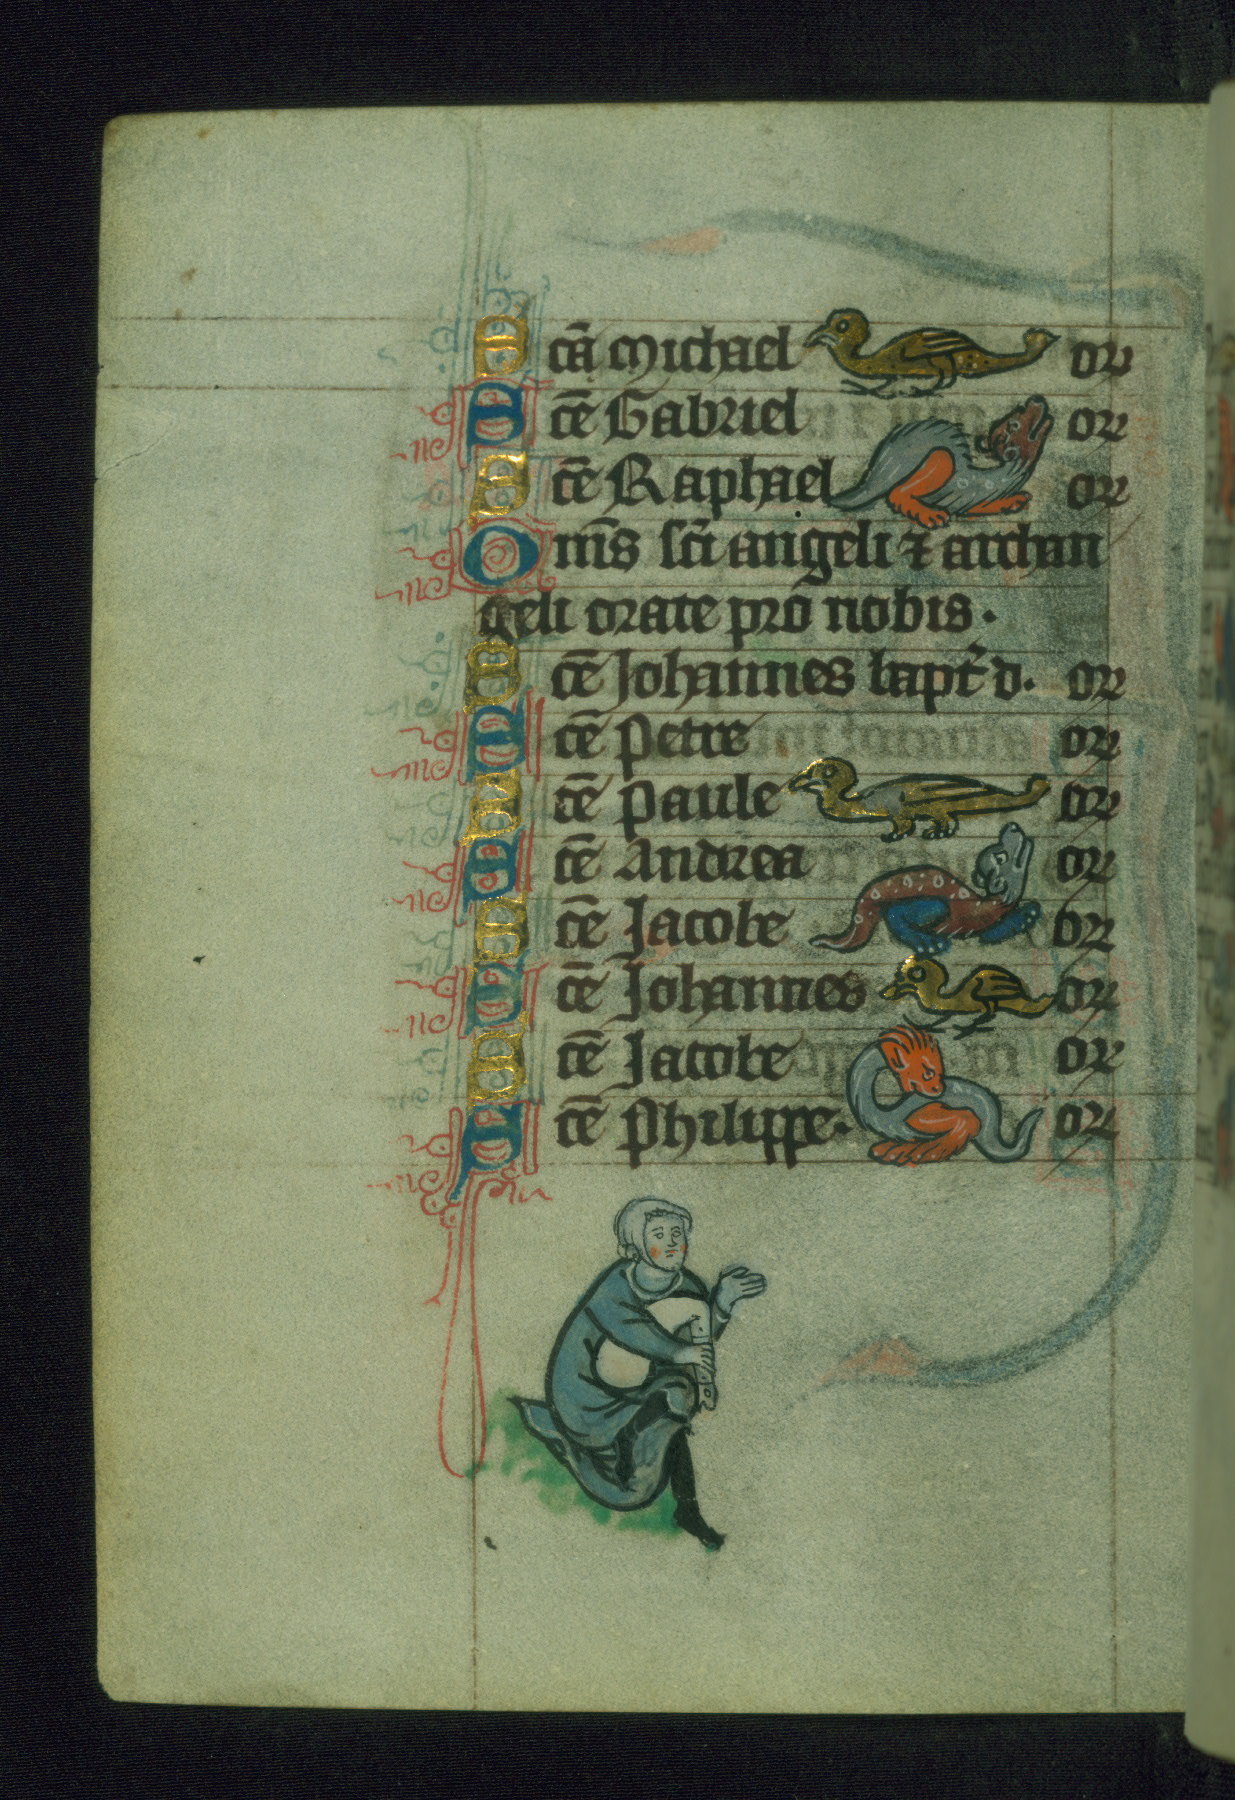 Scā Michael or
Scē Gabriel or
Scē Raphael or
Om̄s sc̄i angeli ⁊ archan
geli orate pro nobis.
Scē Johannes bapt̄ d. or
Scē Petre or
Scē Paule or
Scē Andrea or
Scē Jacobe or
Scē Johannes or
Scē Jacobe or
Scē Philippe. or